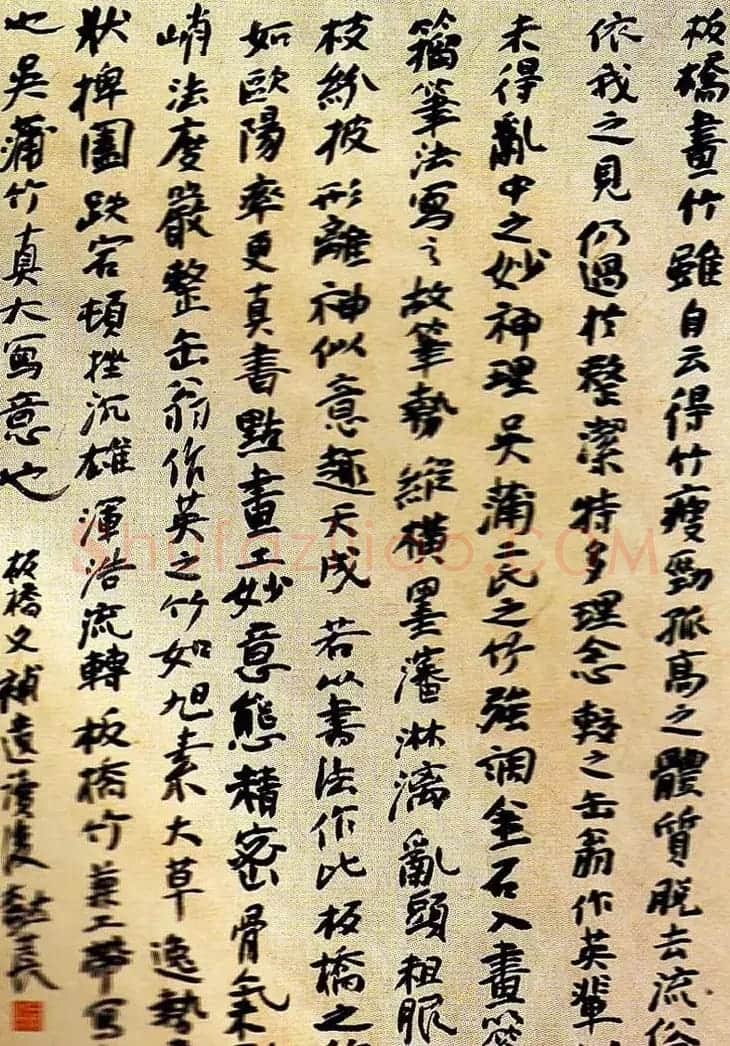 板橋畫竹雖自云得竹瘦勁孤高之體質脫去流俗
依我之見仍過於整潔特多理念較之缶翁作英輩
未得亂中之妙神理吳蒲二氏之竹強調金石入畫
籀筆法寫之故筆勢縱橫墨瀋淋漓亂頭粗服
枝紛披形離神似意趣天成若以書法作比板橋之
如歐陽率更真書點畫工妙意態精密骨氣
峭法度嚴整缶翁作英之竹如旭素大草逸勢
狀捭闔跌宕頓挫沉雄渾浩流轉板橋竹兼工帶寫
也吳蒲竹真大寫意也
板橋文補遺讀後